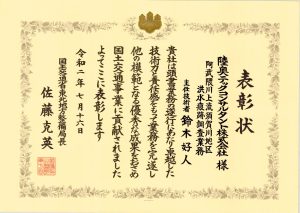 表彰状
陸奥テックコンサルタント株式会社 様
阿武隈川上流須賀川地区
洪水痕跡調査業務
主任技術者 鈴木好人
貴社は頭書業務の遂行にあたり卓越した
技術力と責任感をもって業務を完遂し
他の模範となる優秀な成果をおさめ
国土交通事業に貢献されました
よってここに表彰します
令和二年七月十六日
国土交通省東北地方整備局長
佐藤克英